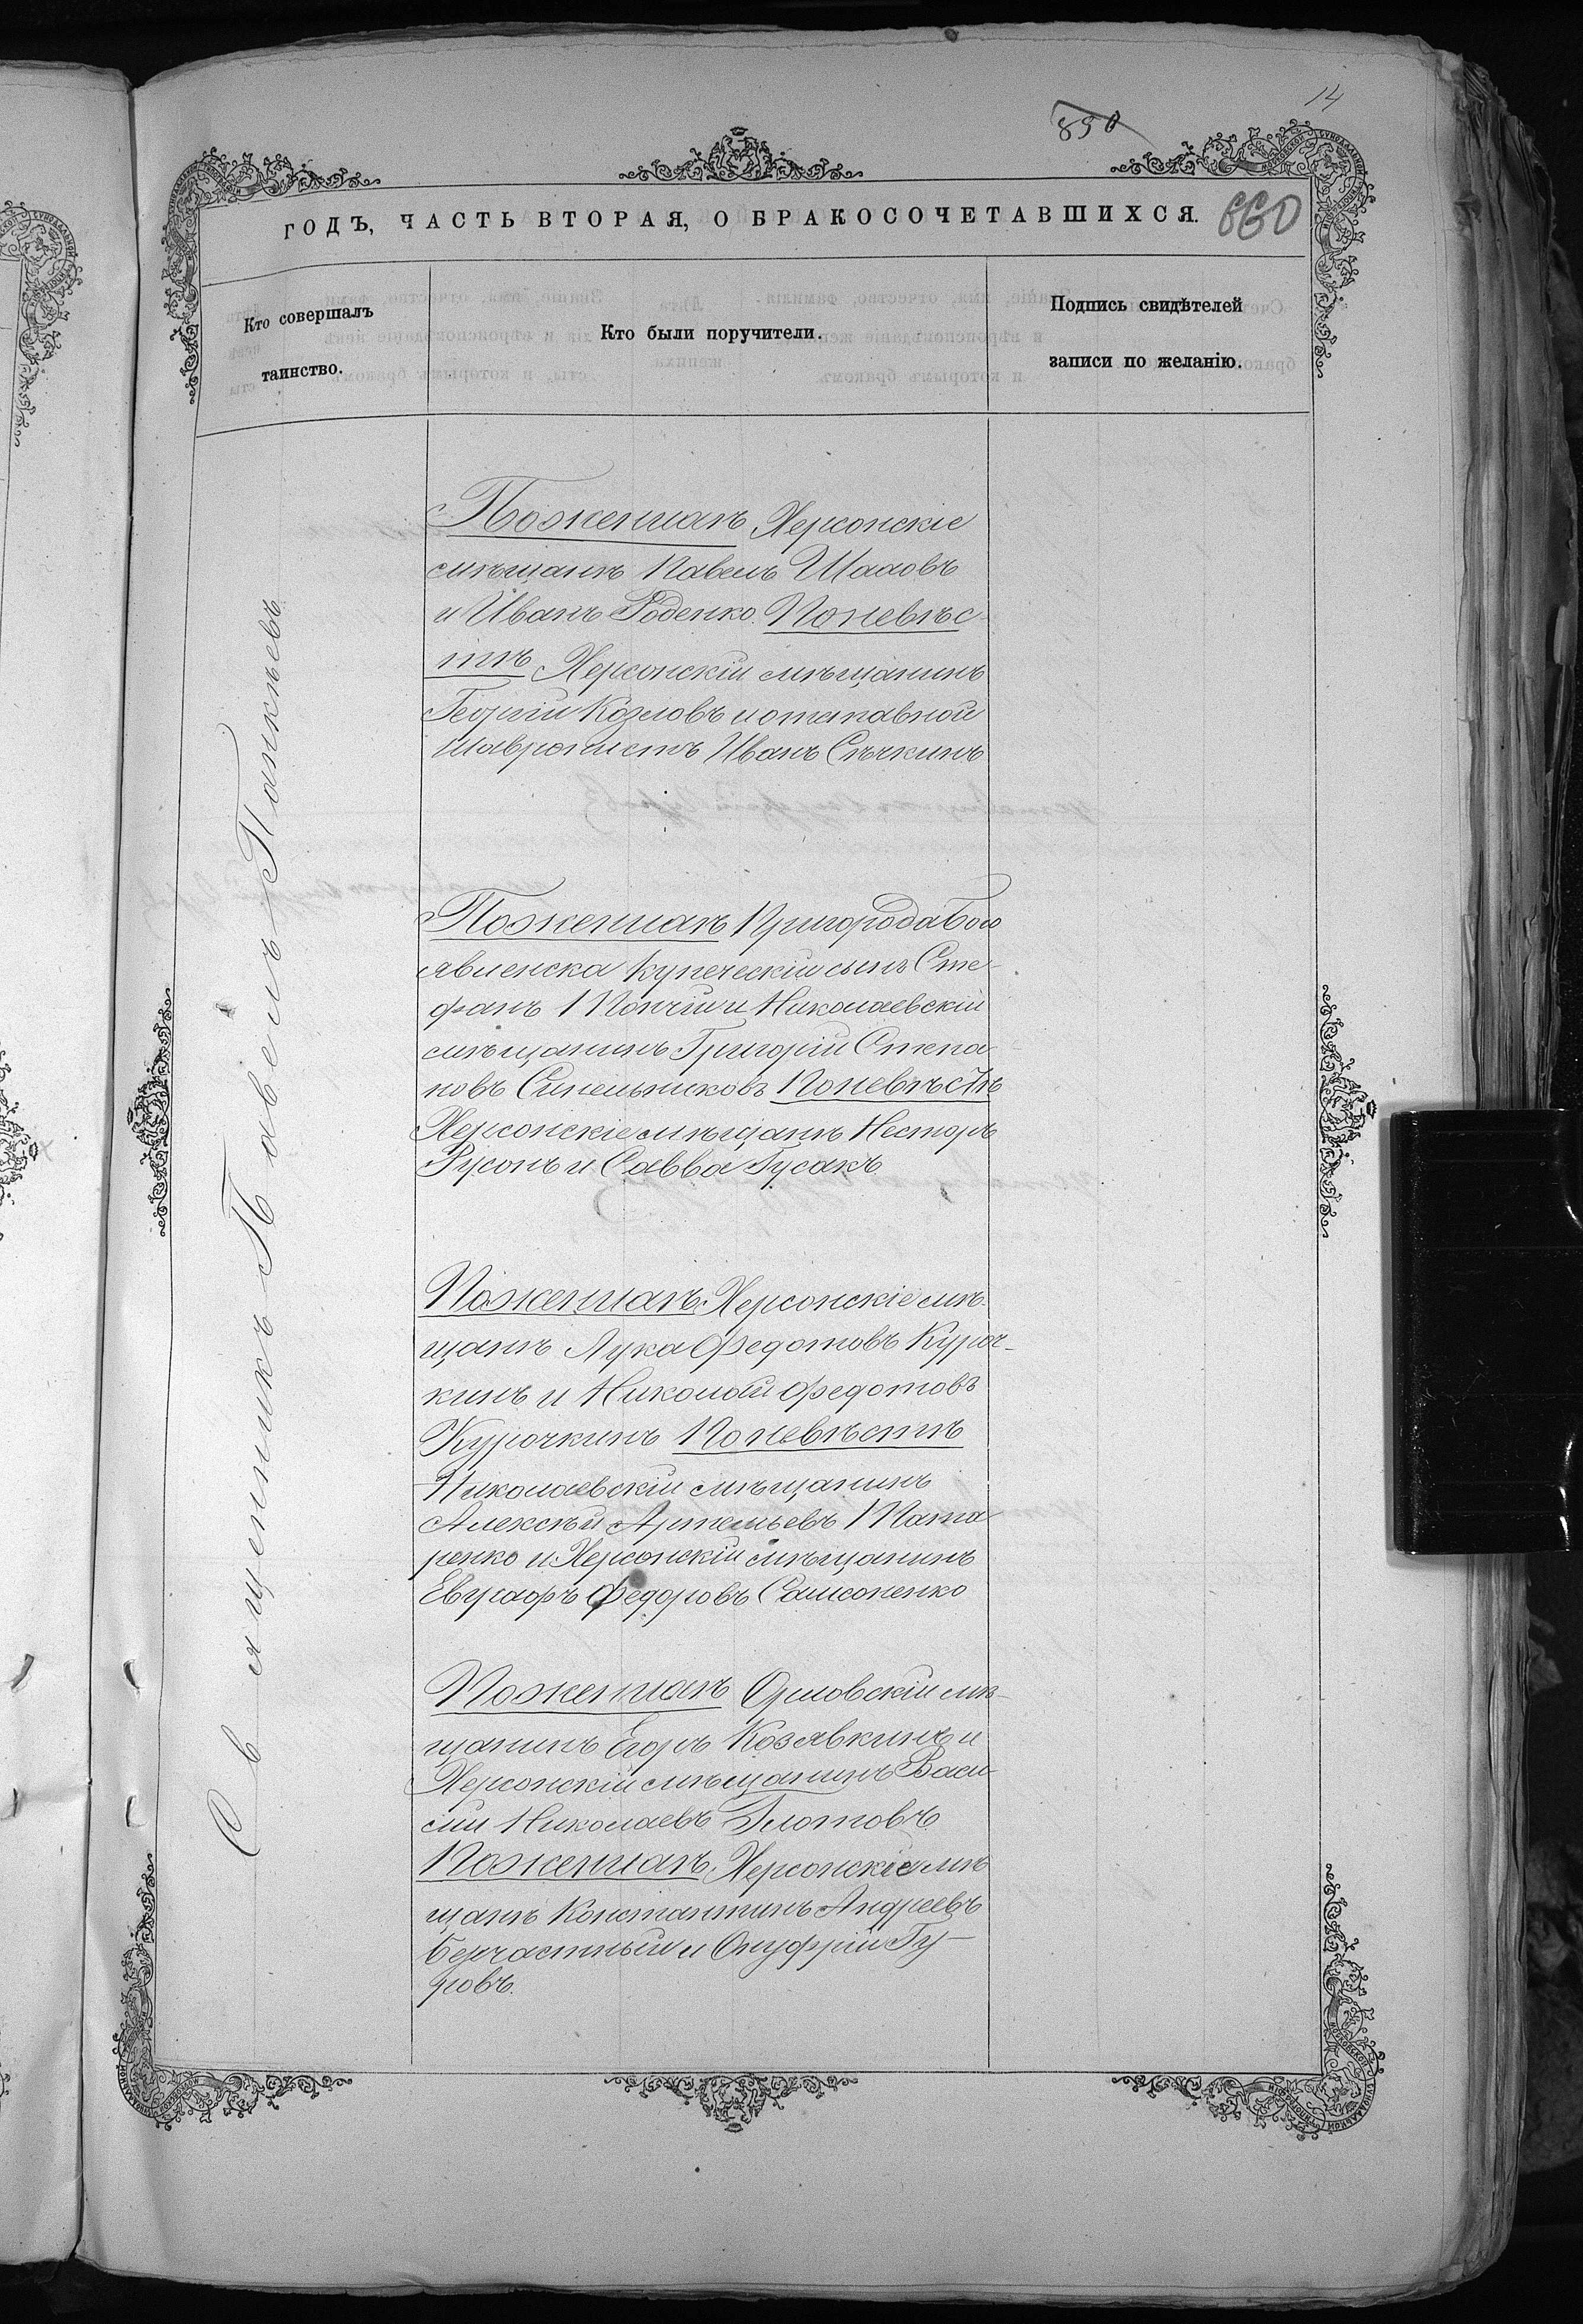 14
890
660
ГОДЪ, ЧАСТЬ ВТОРАЯ, О БРАКОСОЧЕТАВШИХСЯ.
Кто совершалъ
таинство.
Кто были поручители.
Подпись свидѣтелей
записи по желанію.
Священникъ Павелъ Панкѣевъ
По женихѣ Херсонскіе
мѣщане Павелъ
и Иванъ Роденко. По невѣс-
тѣ Херсонскій мѣщанинъ
Георгій Козловъ и отставной
Иванъ Сѣчкинъ
По женихѣ Пригорода Бого
явленска купеческій сынъ Сте-
фанъ и Николаевскій
мѣщанинъ Григорій Степа
новъ Синельниковъ По невѣстѣ
Херсонскіе мѣщане Несторъ
Русонъ и Савва Гусакъ
По женихѣ Херсонскіе мѣ-
щане Лука Федотовъ Куроч-
кинъ и Николай Федотовъ
Курочкинъ По невѣстѣ
Николаевскій мѣщанинъ
Алексѣй Артемьевъ Пата
ренко и Херсонскій мѣщанинъ
Евграфъ Федоровъ Самсоненко
По женихѣ Орловскій мѣ-
щанинъ Егоръ Козявкинъ и
Херсонскій мѣщанинъ Васи-
лій Николаевъ Глотовъ
По женихѣ Херсонскіе мѣ
щане Константинъ Андреевъ
Безчастный и Онуфрій Гу-
ровъ.